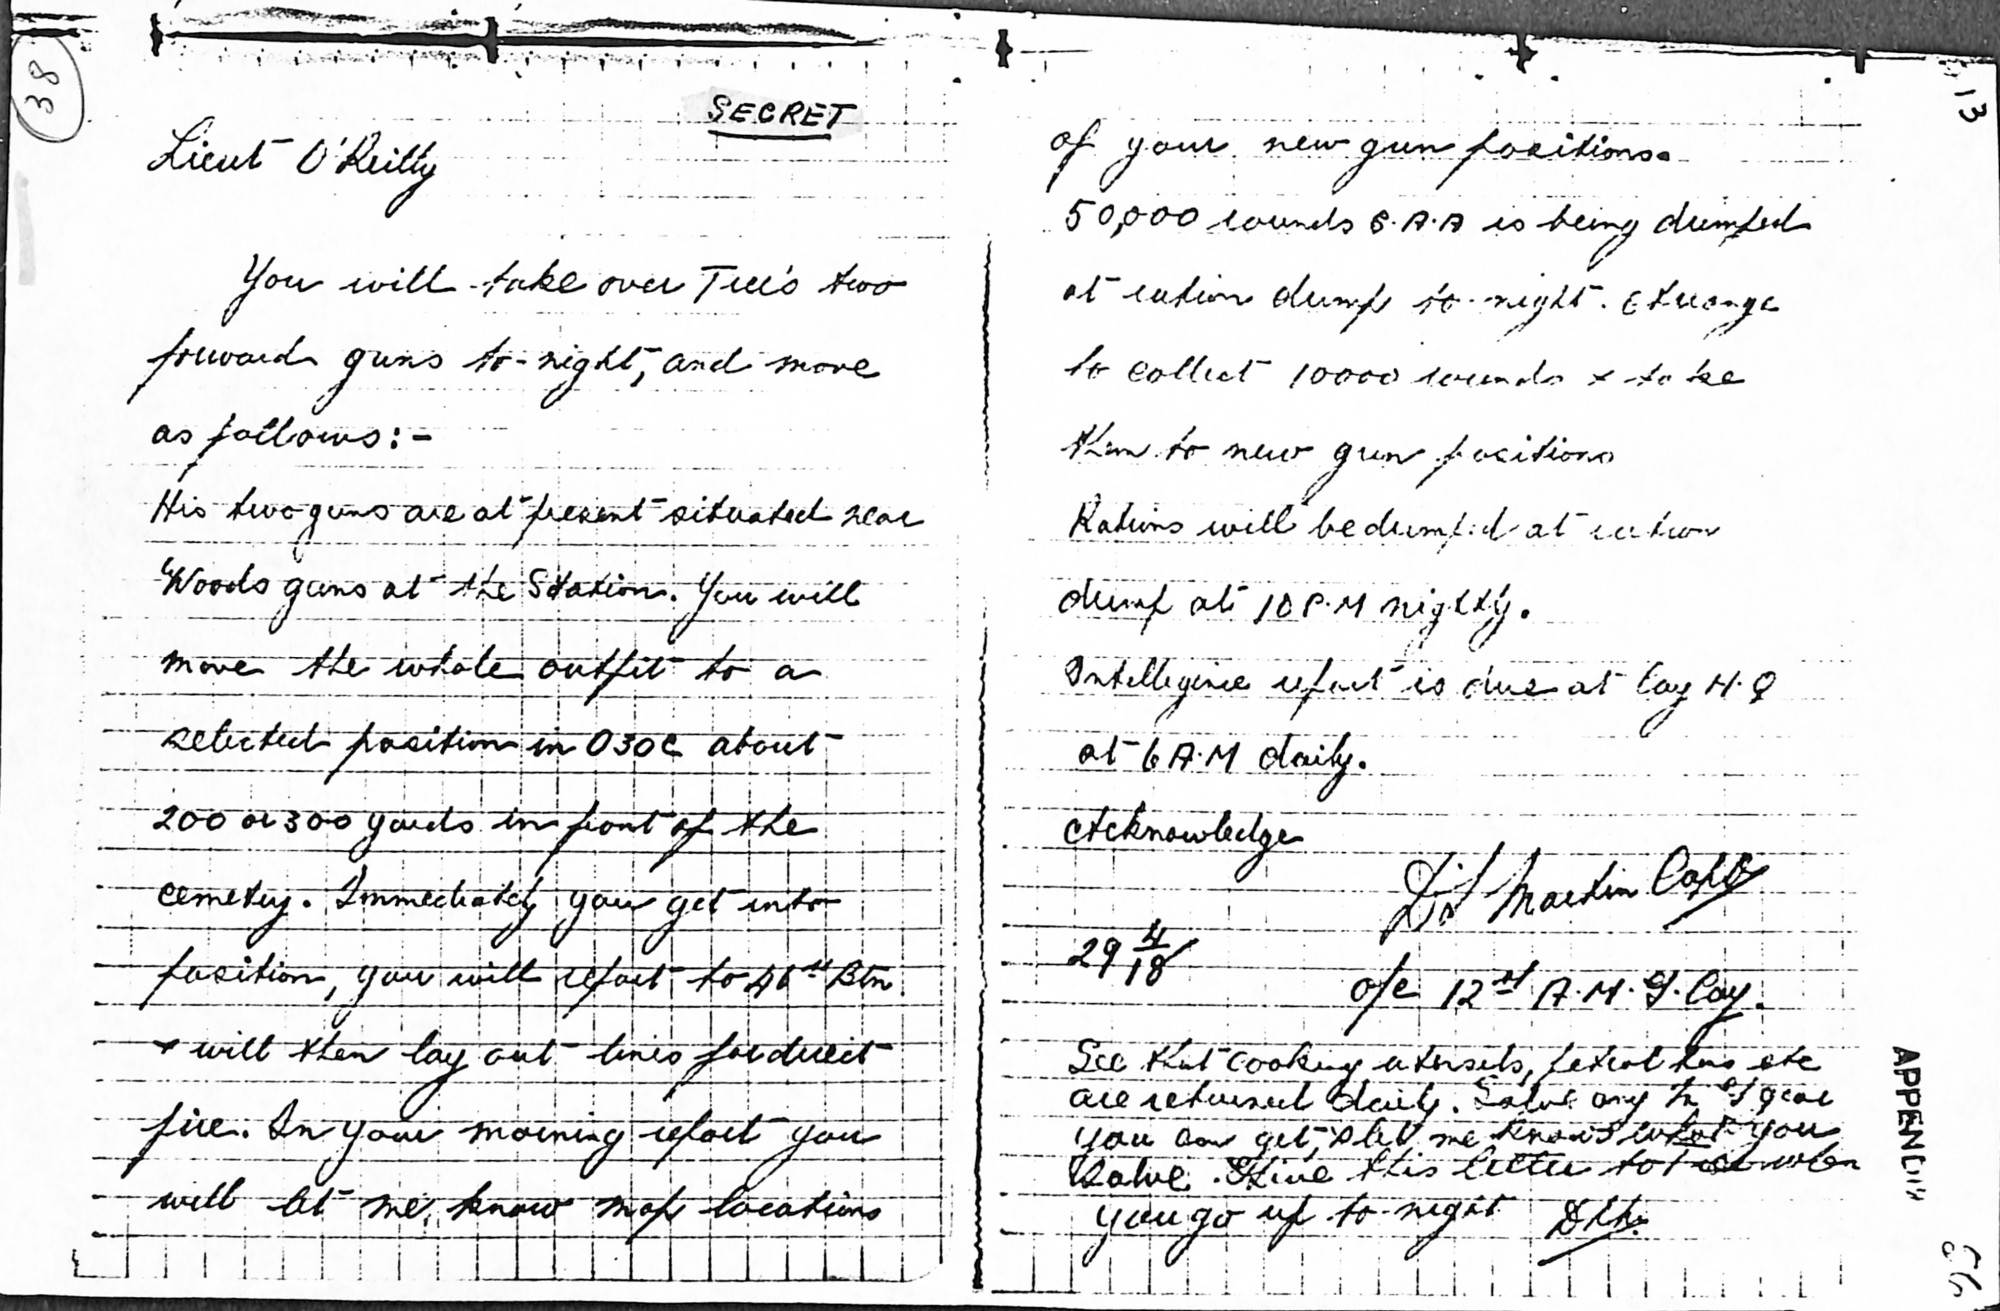 38
SECRET
Lieut O'Reilly
You will take over Tree's two
forward guns to-night, and move
as follows:-
His two guns are at present situated near
Woods guns at the Station. You will
move the whole outfit to a
selected position in O30c about
200 or 300 yards in front of the
cemetery. Immediately you get into
position, you will report to 46th Btn
+ will then lay out lines for direct
fire. In your morning report you
will let me know map locations
13
of your new gun positions.
50,000 rounds S.A.A is being dumped
at ration dump to-night. Arrange
to collect 10000 rounds + take
them to new gun positions
Rations will be dumped at ration
dump at 10 P.M nightly.
Intelligence report is due at Coy H.Q
at 6 A.M daily.
Acknowledge
Martin Capt
29 4/18
o/c 12th A.M.G. Coy.
See that cooking utensils, petrol tins etc
are returned daily. Salve any M G gear
you can get, & let me know what you
salve. Give this letter to Tree when
you go up to-night
APPENDIX